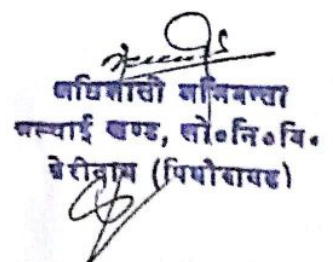 अधिशासी अभियन्ता
अस्थाई खण्ड, लो०नि०वि०
बेरीनाग (पिथौरागढ)